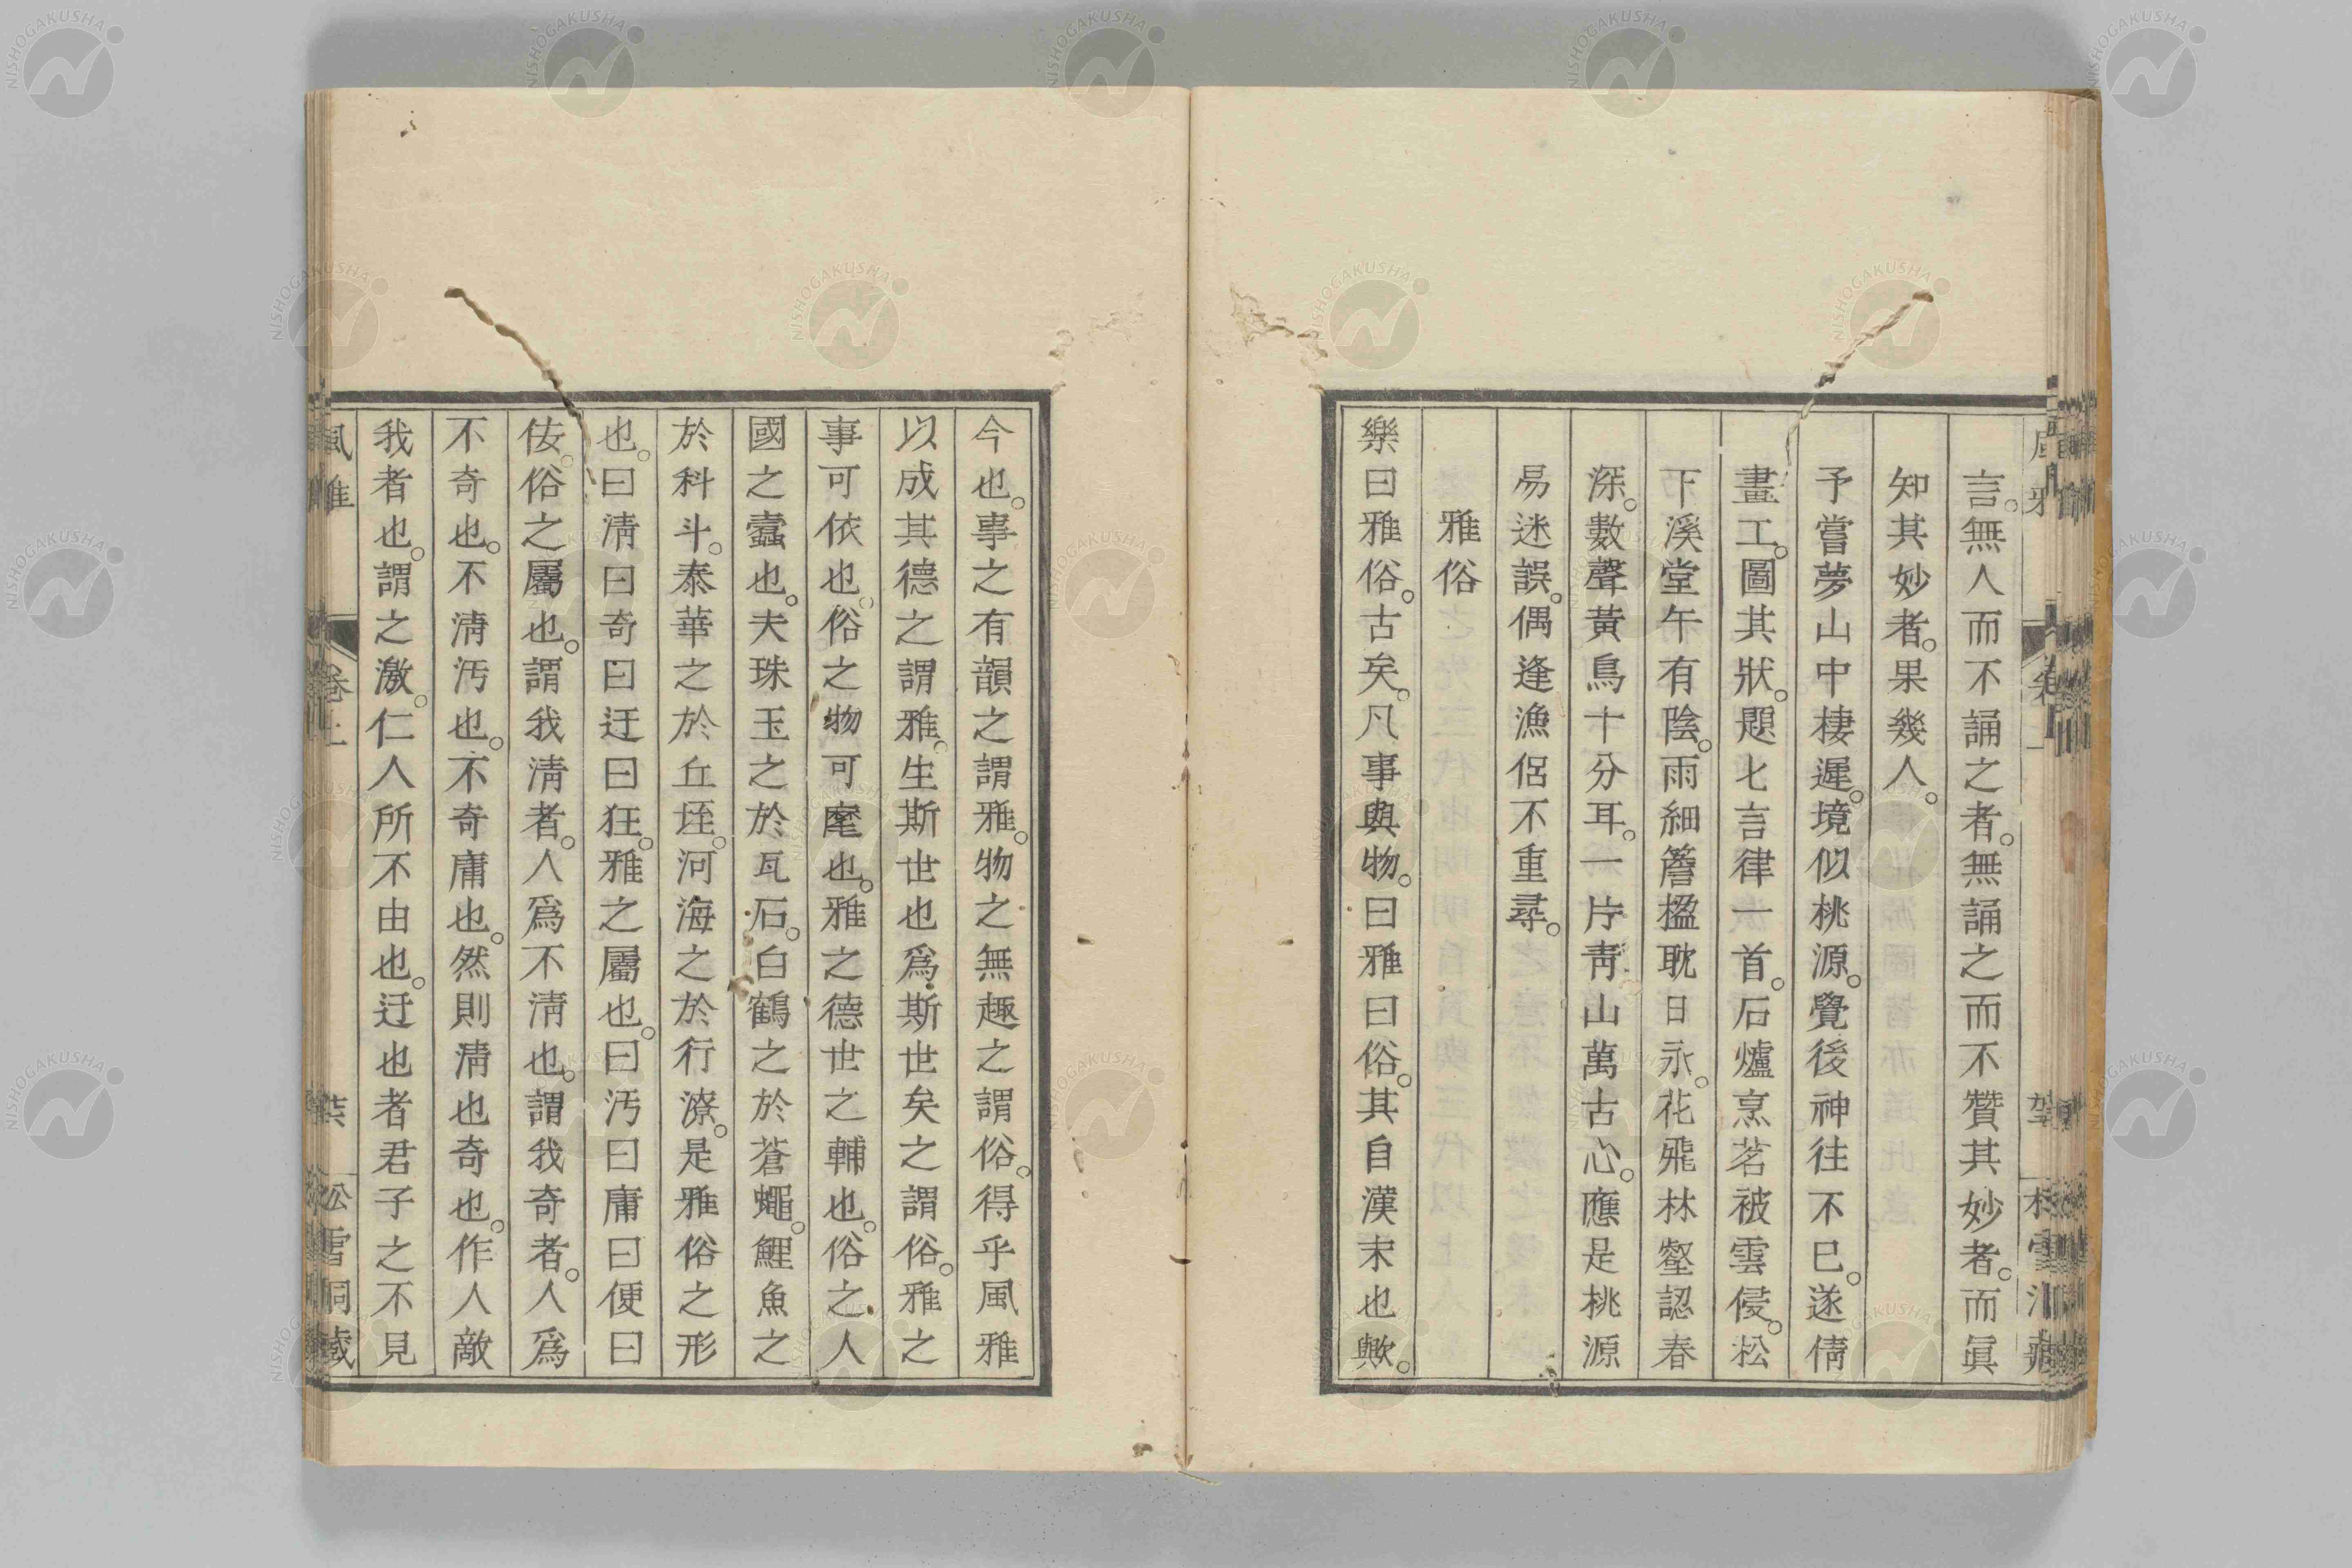 言。無人而不誦之者。無誦之而不贊其妙者。而眞
知其妙者。果幾人。
予嘗夢山中棲遲。境似桃源。覺後神往不已。遂倩
畫工。圖其狀。題七言律一首。石爐烹茗被雲侵。松
下溪堂午有陰。雨細簷楹耽日永。花飛林壑認春
深。數聲黃鳥十分耳。一片靑山萬古心。應是桃源
易迷誤。偶逢漁侶不重尋。
雅俗
樂曰雅俗。古矣。凡事與物。曰雅曰俗。其自漢末也歟。
今也。事之有韻之謂雅。物之無趣之謂俗。得乎風雅
以成其德之謂雅。生斯世也爲斯世矣之謂俗。雅之
事可依也。俗之物可麾也。雅之德世之輔也。俗之人
國之蠹也。夫珠玉之於瓦石。白鶴之於蒼蠅。鯉魚之
於科斗。泰華之於丘垤。河海之於行潦。是雅俗之形
也。曰淸曰奇曰迂曰狂。雅之屬也。曰汚曰庸曰便曰
佞。俗之屬也。謂我淸者。人爲不淸也。謂我奇者。人爲
不奇也。不淸汚也。不奇庸也。然則淸也奇也。作人敵
我者也。謂之激。仁人所不由也。迂也者君子之不見
風雅 卷上 松雪洞藏
NISHOGAKUSHA